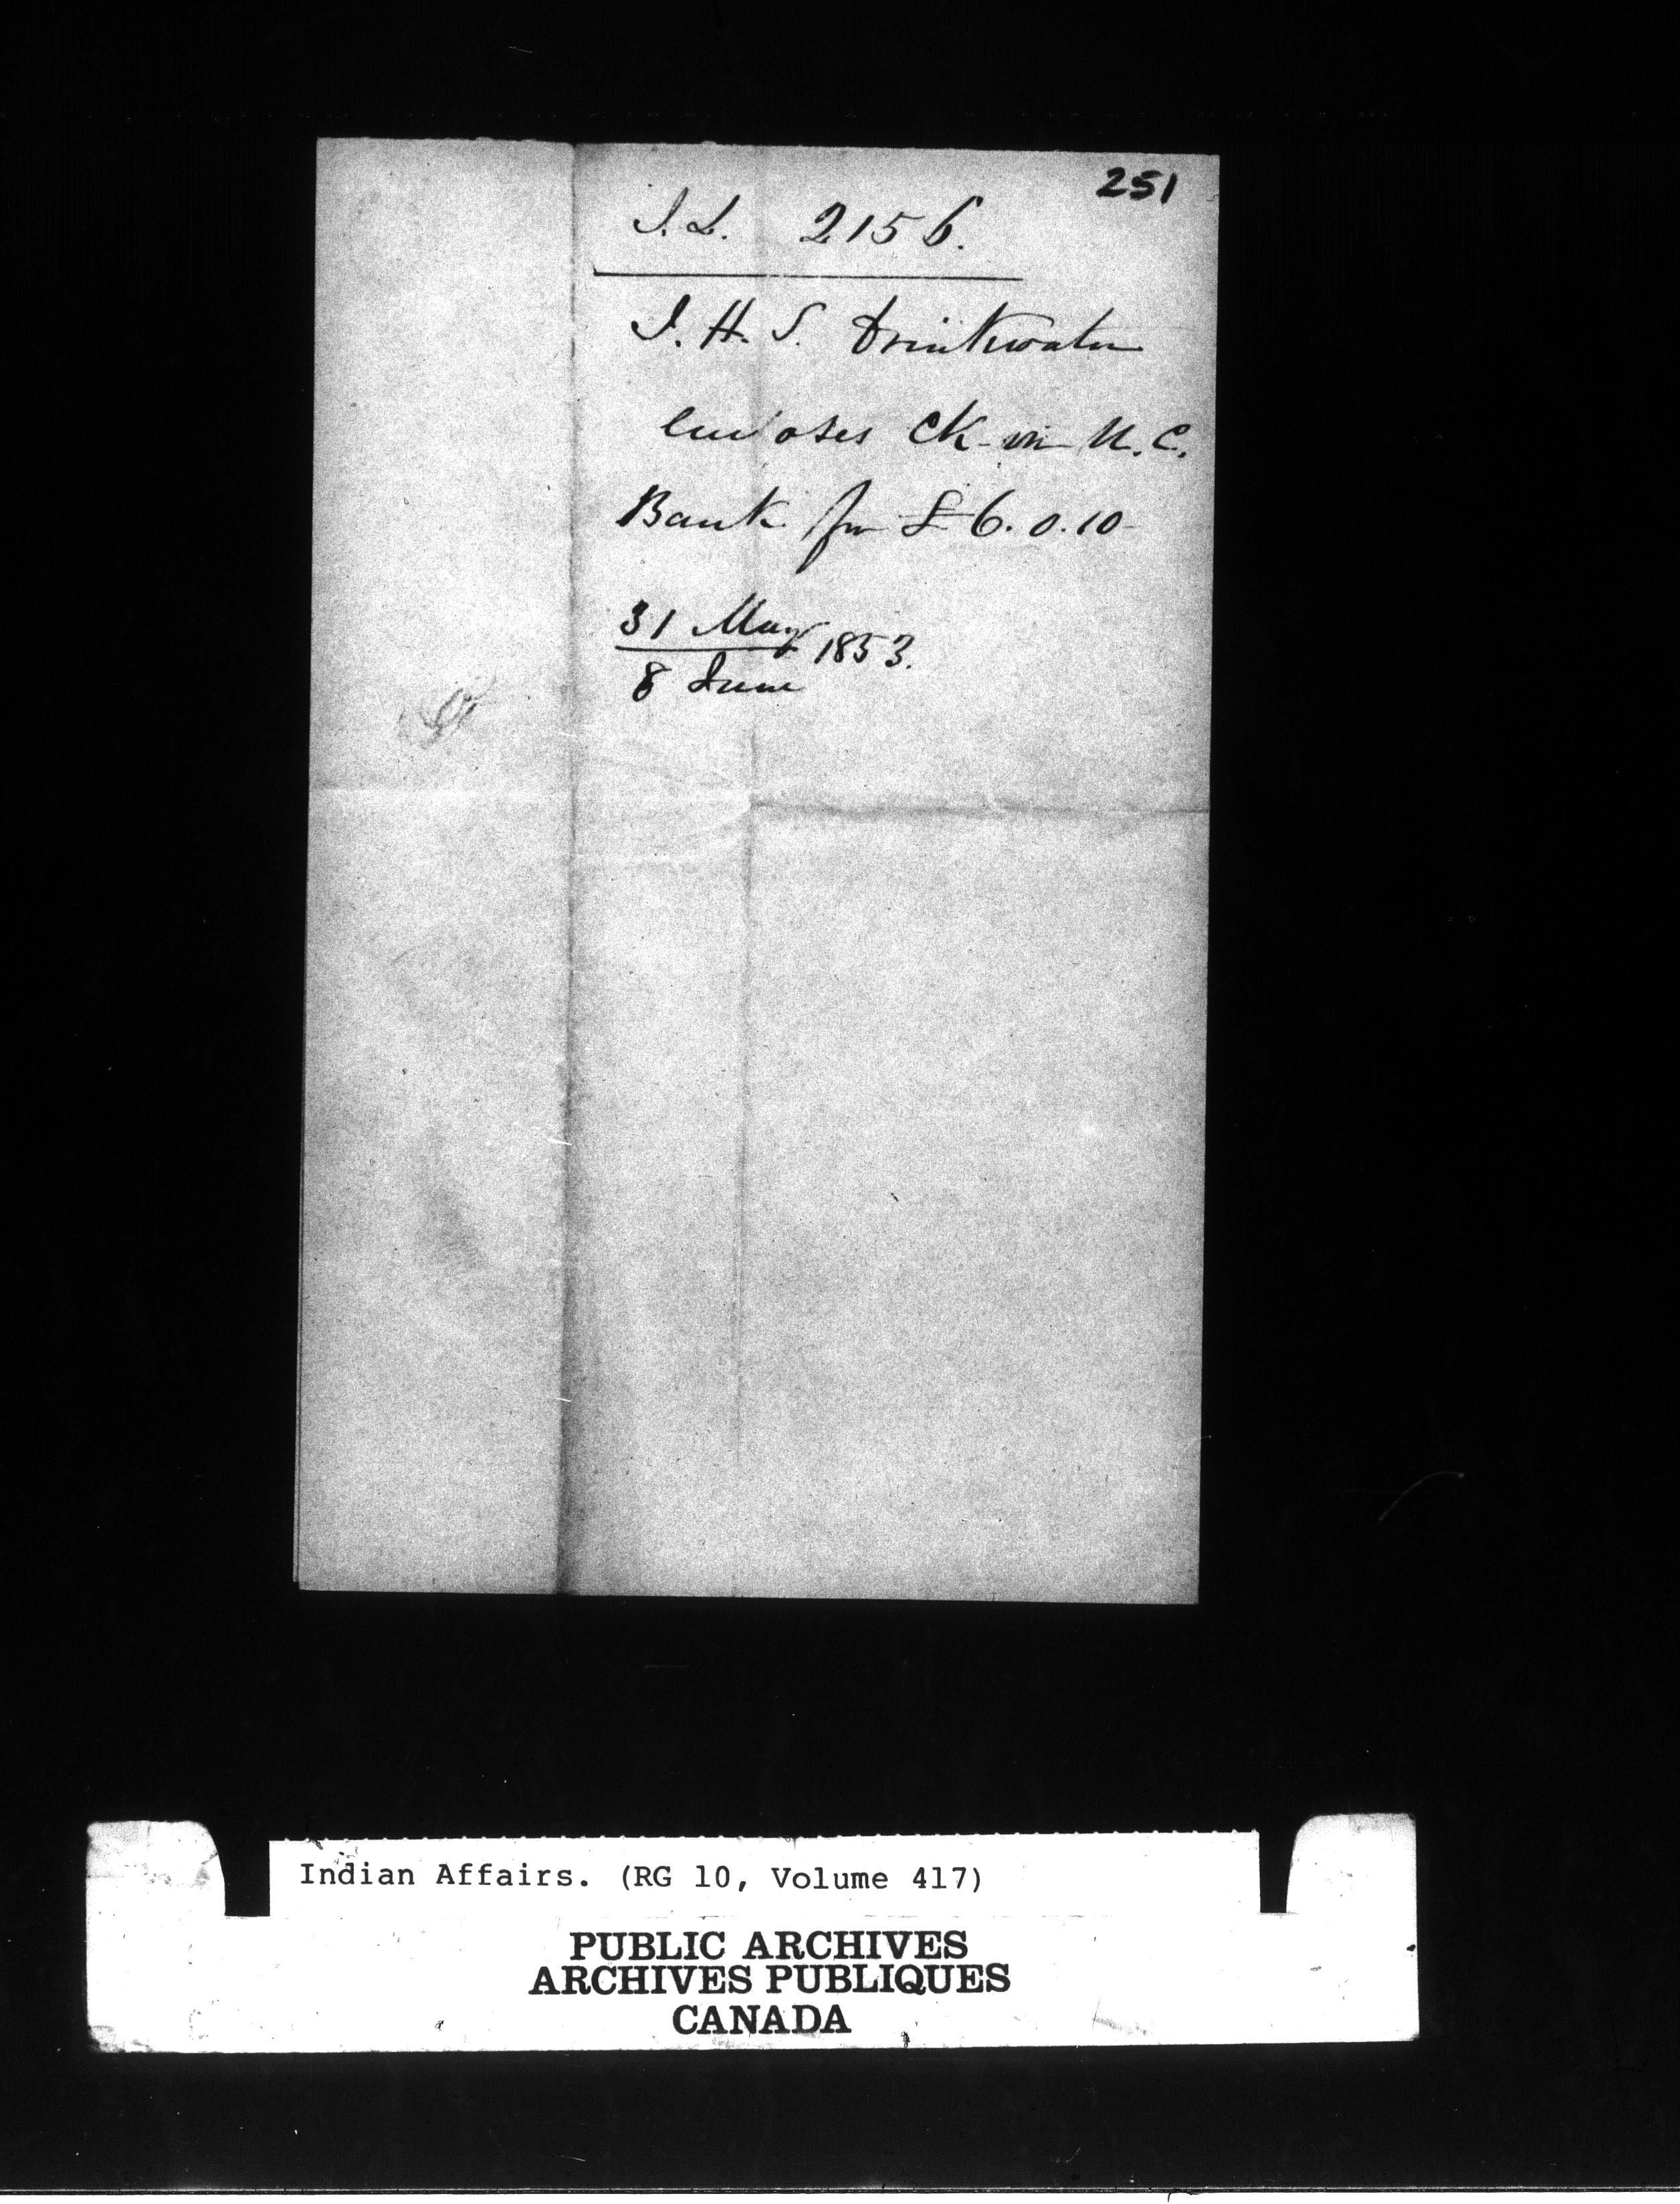 251
I.L. 2156.
I. H. S. Drinkwater
encloses Ck on U.C.
Bank for £6.0.10
31 May
1853.
8 June
Indian Affairs. (RG 10, Volume 417)
PUBLIC ARCHIVES
ARCHIVES PUBLIQUES
CANADA